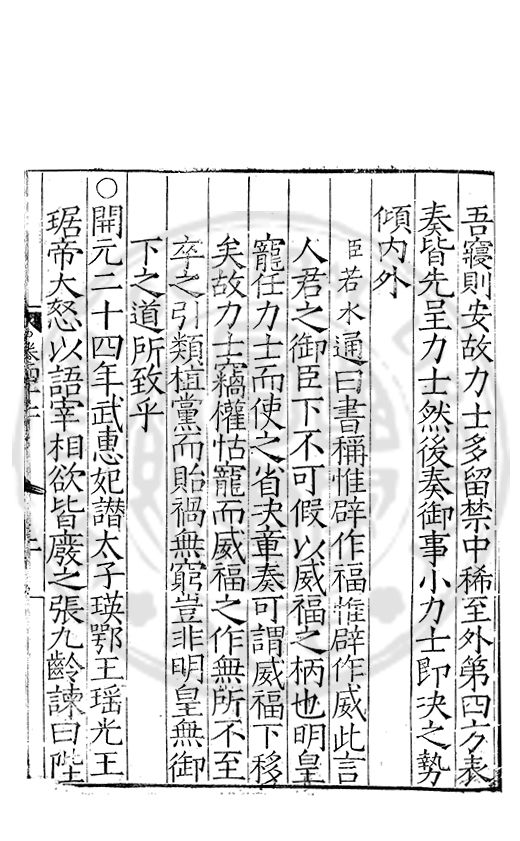 吾寢則安故力士多留禁中稀至外第四方表
奏皆先呈力士然後奏御事小力士即決之勢
傾内外
臣若水通曰書稱惟辟作福惟辟作威此言
人君之御臣下不可假以威福之柄也明皇
寵任力士而使之省决章奏可謂威福下移
矣故力士竊權怙寵而威福之作無所不至
卒之引類植黨而貽禍無窮豈非明皇無御
下之道所致乎
○開元二十四年武惠妃譖太子瑛鄂王瑶光王
琚帝大怒以語宰相欲皆廢之張九齡諫曰陛